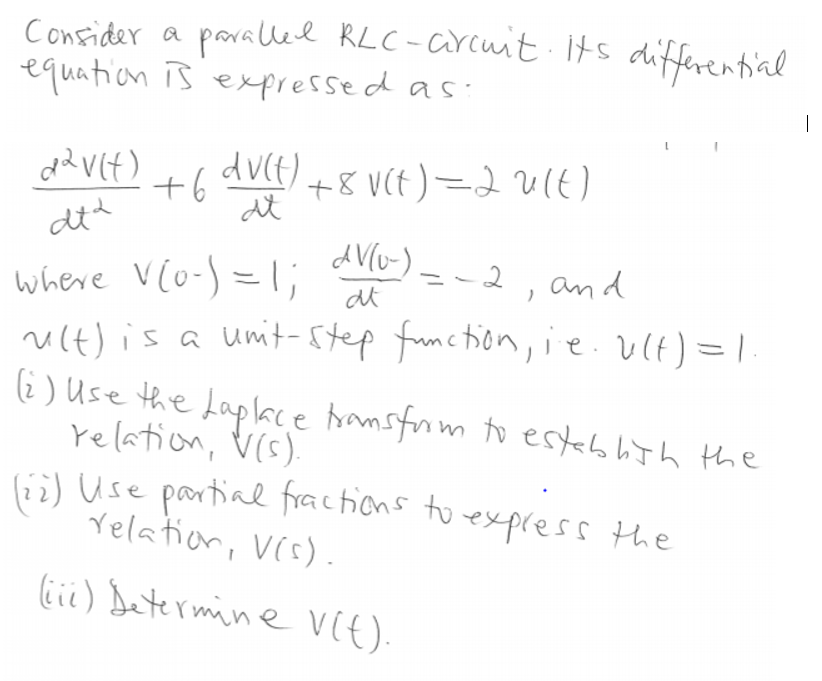 Consider a parallel RLC-circuit. Its differential
equation is expressed as:
d²v(t)/dt² + 6 dv(t)/dt + 8 v(t) = 2 u(t)
where v(0-) = 1; dv(0-)/dt = -2, and
u(t) is a unit-step function, i.e. u(t) = 1.
(i) Use the Laplace transform to establish the
relation, V(s).
(ii) Use partial fractions to express the
relation, V(s).
(iii) Determine v(t).